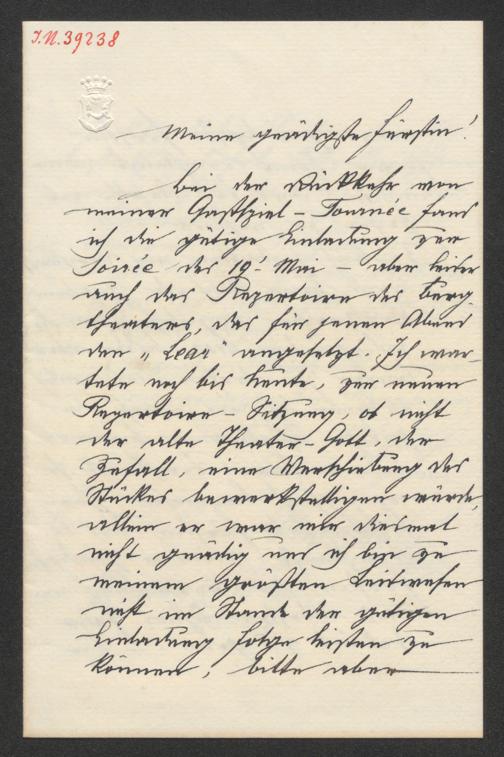 I.N. 39238
Meine gnädigste Fürstin!
Bei der Rückkehr von
meiner Gastspiel-Tournée fand
ich die gütige Einladung zur
Soirée des 19t Mai – aber leider
auch das Repertoire des Burg-
theaters, das für jenen Abend
den „Lear" angesetzt. Ich war-
tete noch bis heute, zur neuen
Repertoire-Sitzung, ob nicht
der alte Theater-Gott, der
Zufall, eine Verschiebung des
Stückes bewerkstelligen würde,
allein er war mir diesmal
nicht gnädig und ich bin zu
meinem größten Leidwesen
nicht im Stande der gütigen
Einladung folge leisten zu
können, bitte aber